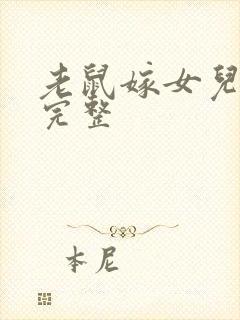 老鼠嫁女兒
完整
本尼